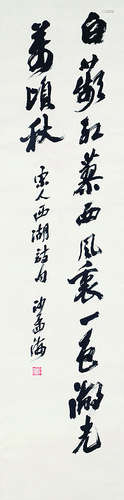 白蘋红蓼西风裏一色湖光
万頃秋
宋人西湖詩句沙孟海